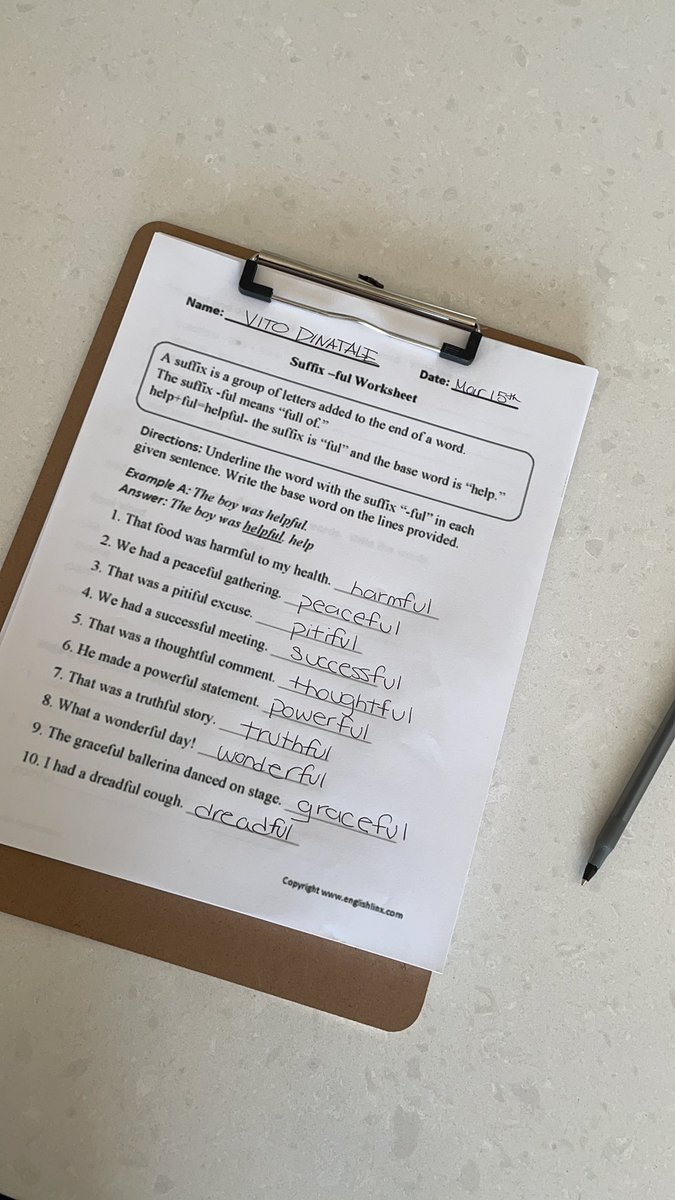 Name: VITO DINATALE
Date: Mar 15th
Suffix –ful Worksheet
A suffix is a group of letters added to the end of a word.
The suffix -ful means “full of.”
help+ful=helpful- the suffix is “ful” and the base word is “help.”
Directions: Underline the word with the suffix “-ful” in each
given sentence. Write the base word on the lines provided.
Example A: The boy was helpful.
Answer: The boy was helpful. help
1. That food was harmful to my health. harmful
2. We had a peaceful gathering. peaceful
3. That was a pitiful excuse. pitiful
4. We had a successful meeting. successful
5. That was a thoughtful comment. thoughtful
6. He made a powerful statement. powerful
7. That was a truthful story. truthful
8. What a wonderful day! wonderful
9. The graceful ballerina danced on stage. graceful
10. I had a dreadful cough. dreadful
Copyright www.englishlinx.com